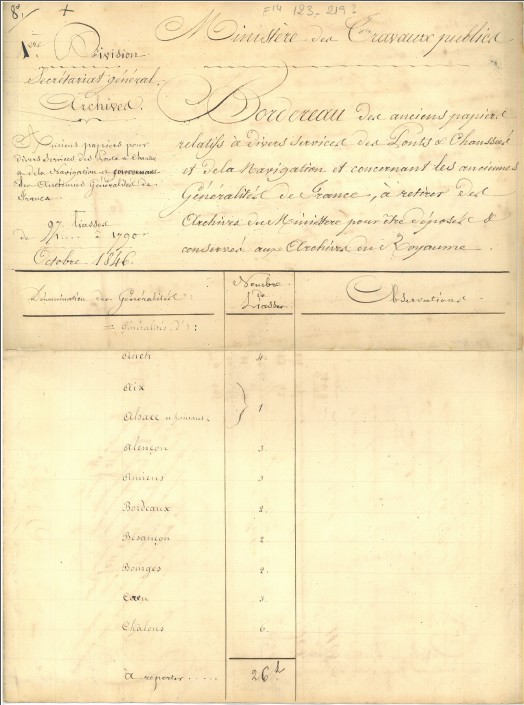 8°.
+
=14 123-219?
Ministère des Travaux publics
1ère Division
Secrétariat général.
Archives.
Anciens papiers pour
divers services des Ponts & Chaussées
& de la Navigation et concernant
les anciennes Généralités de
France.
97 liasses
de à 1790
Octobre 1846.
Bordereau des anciens papiers
relatifs à divers services des Ponts & Chaussées
et de la Navigation et concernant les anciennes
Généralités de France, à retirer des
Archives du Ministère pour être déposés &
conservés aux Archives du Royaume.
Dénomination des Généralités.
Nombre
de
Liasses
Observations.
= Généralités d' :
Auch 4.
Aix
Alsace 1
Alençon 3.
Amiens 3
Bordeaux 2.
Besançon 2.
Bourges 2.
Caen 3.
Châlons 6.
à reporter ..... 26